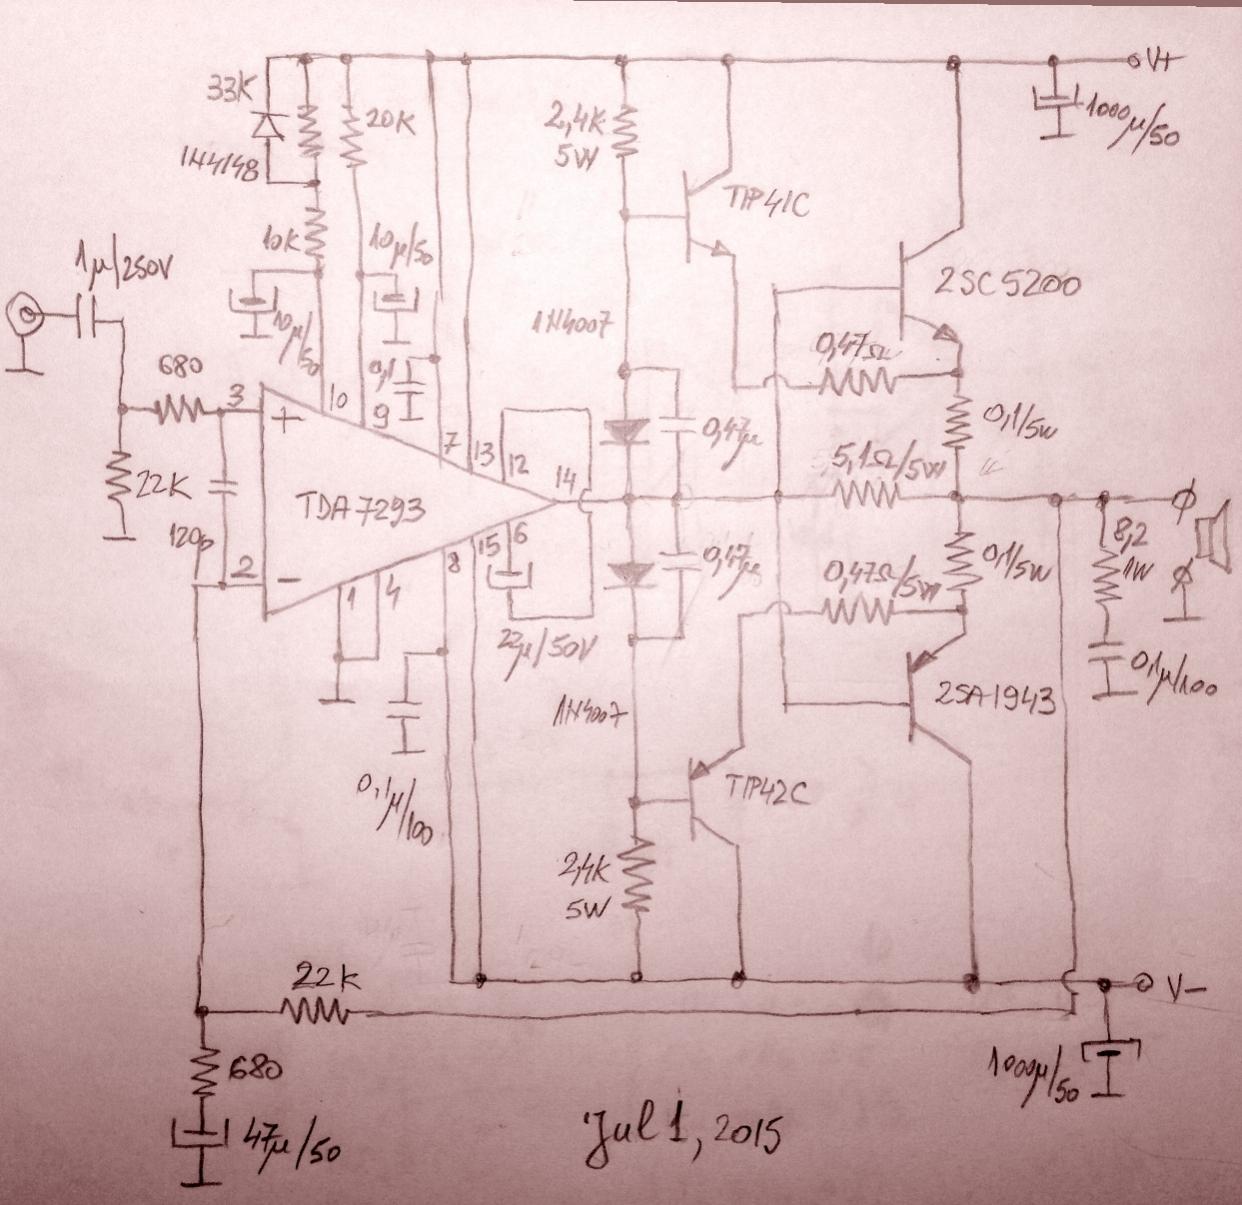 V+
33K
20K
1000μ/50
2,4K
5W
1N4148
TIP41C
10K
10μ/50
1μ/250V
2SC5200
10μ/50
1N4007
0,47Ω
680
0,1
3
+
10
9
7
13
12
14
0,47μ
0,1/5W
5,1Ω/5W
22K
TDA7293
120p
2
-
1
4
8
15
6
0,47μ
0,47Ω/5W
0,1/5W
8,2
1W
22μ/50V
0,1μ/100
2SA1943
1N4007
TIP42C
0,1μ/100
2,4K
5W
22K
V-
680
1000μ/50
47μ/50
Jul 1, 2015